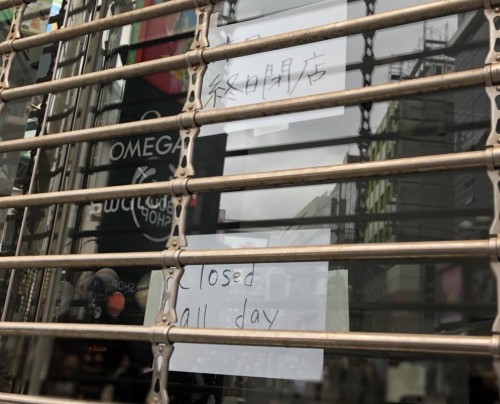 終日閉店
OMEGA
SHOP
Closed
all day